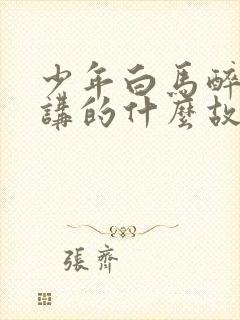 少年白馬醉
講的什麼故
張齊